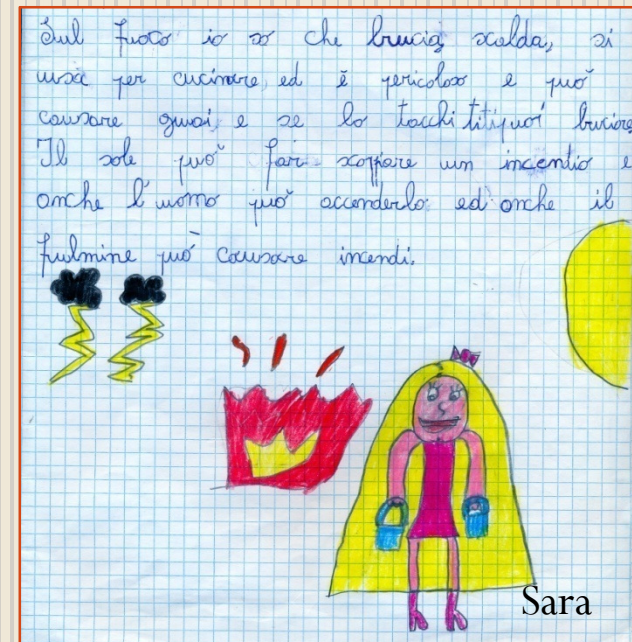 Sul fuoco io so che brucia, scalda, si
usa per cucinare, ed è pericoloso e può
causare guai, e se lo tocchi titipuoi bruciare
Il sole può far scoppare un incentio e
anche l'uomo può accenderlo ed anche il
fulmine può causare incendi.
Sara